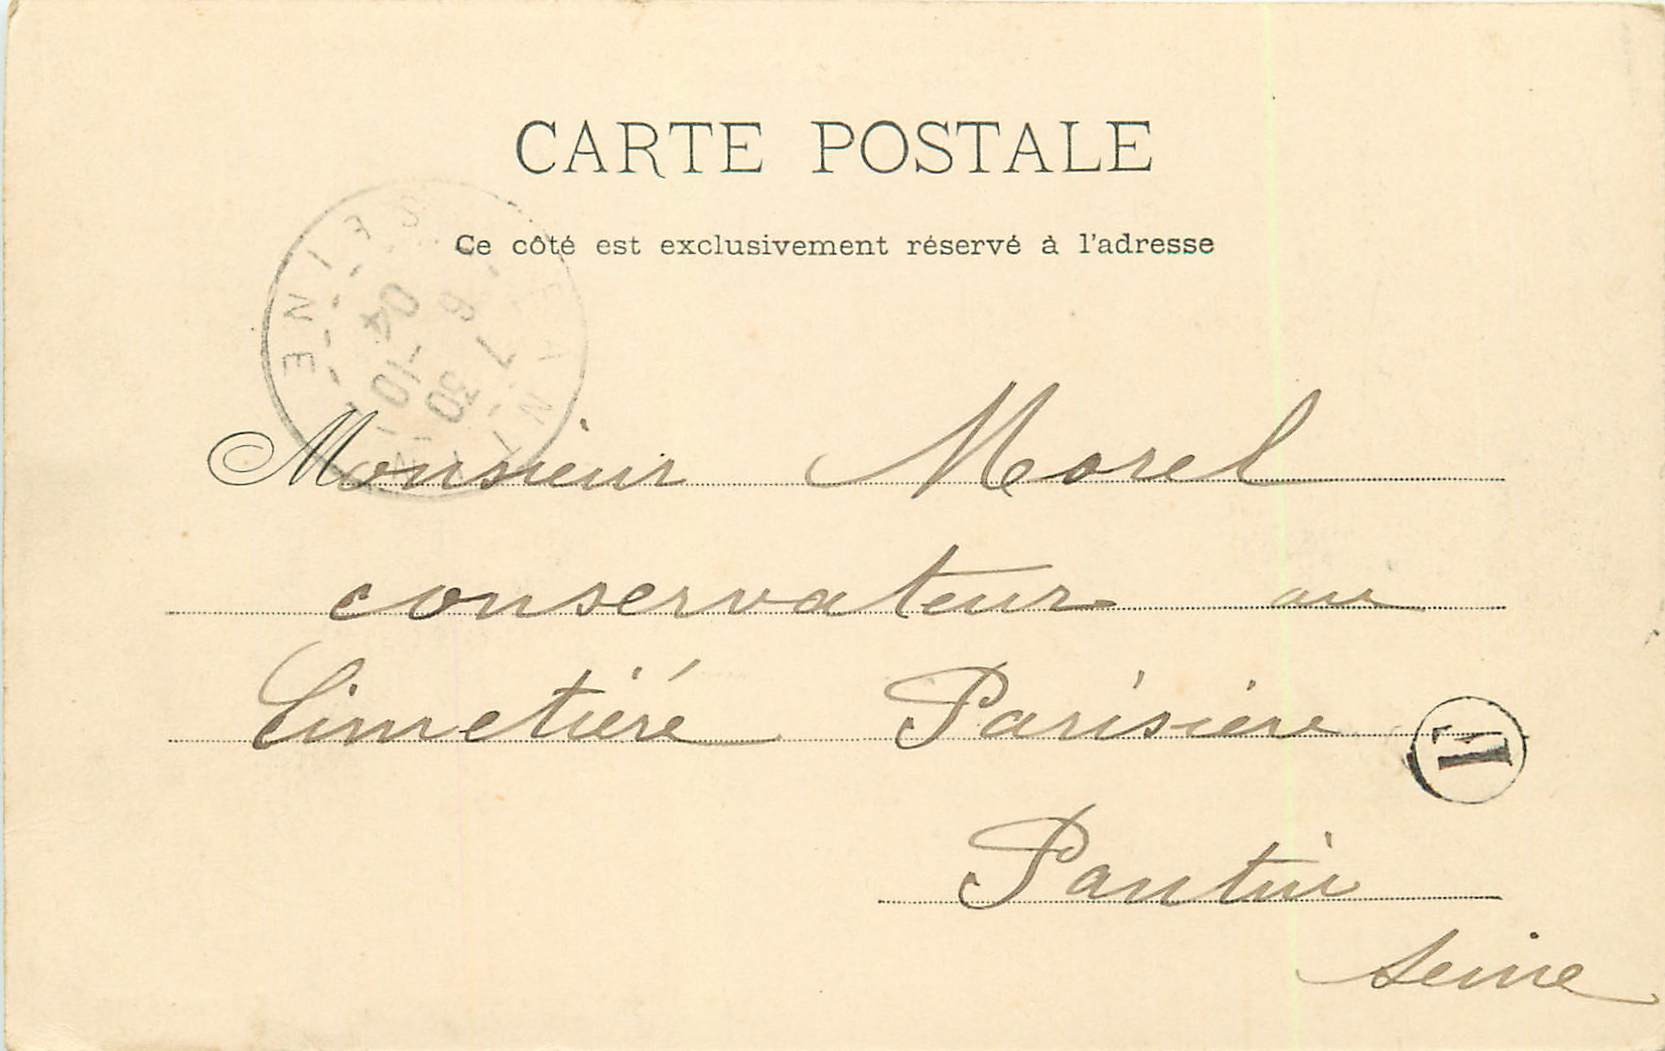 CARTE POSTALE
Ce côté est exclusivement réservé à l'adresse
PANTIN
SEINE
6
7 30
-10
04
Monsieur Morel
conservateur au
Cimetiéré Parisiere
Pantin
Seine